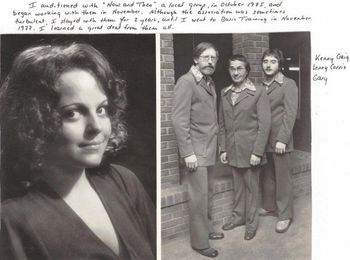 I auditioned with "Now and Then" a local group, in October 1975, and
began working with them in November. Although the association was sometimes
turbulent I stayed with them for 2 years, until I went to Basic Training in November
1977. I learned a great deal from them all.
Kenny Craig
Lenny Corris
Gary